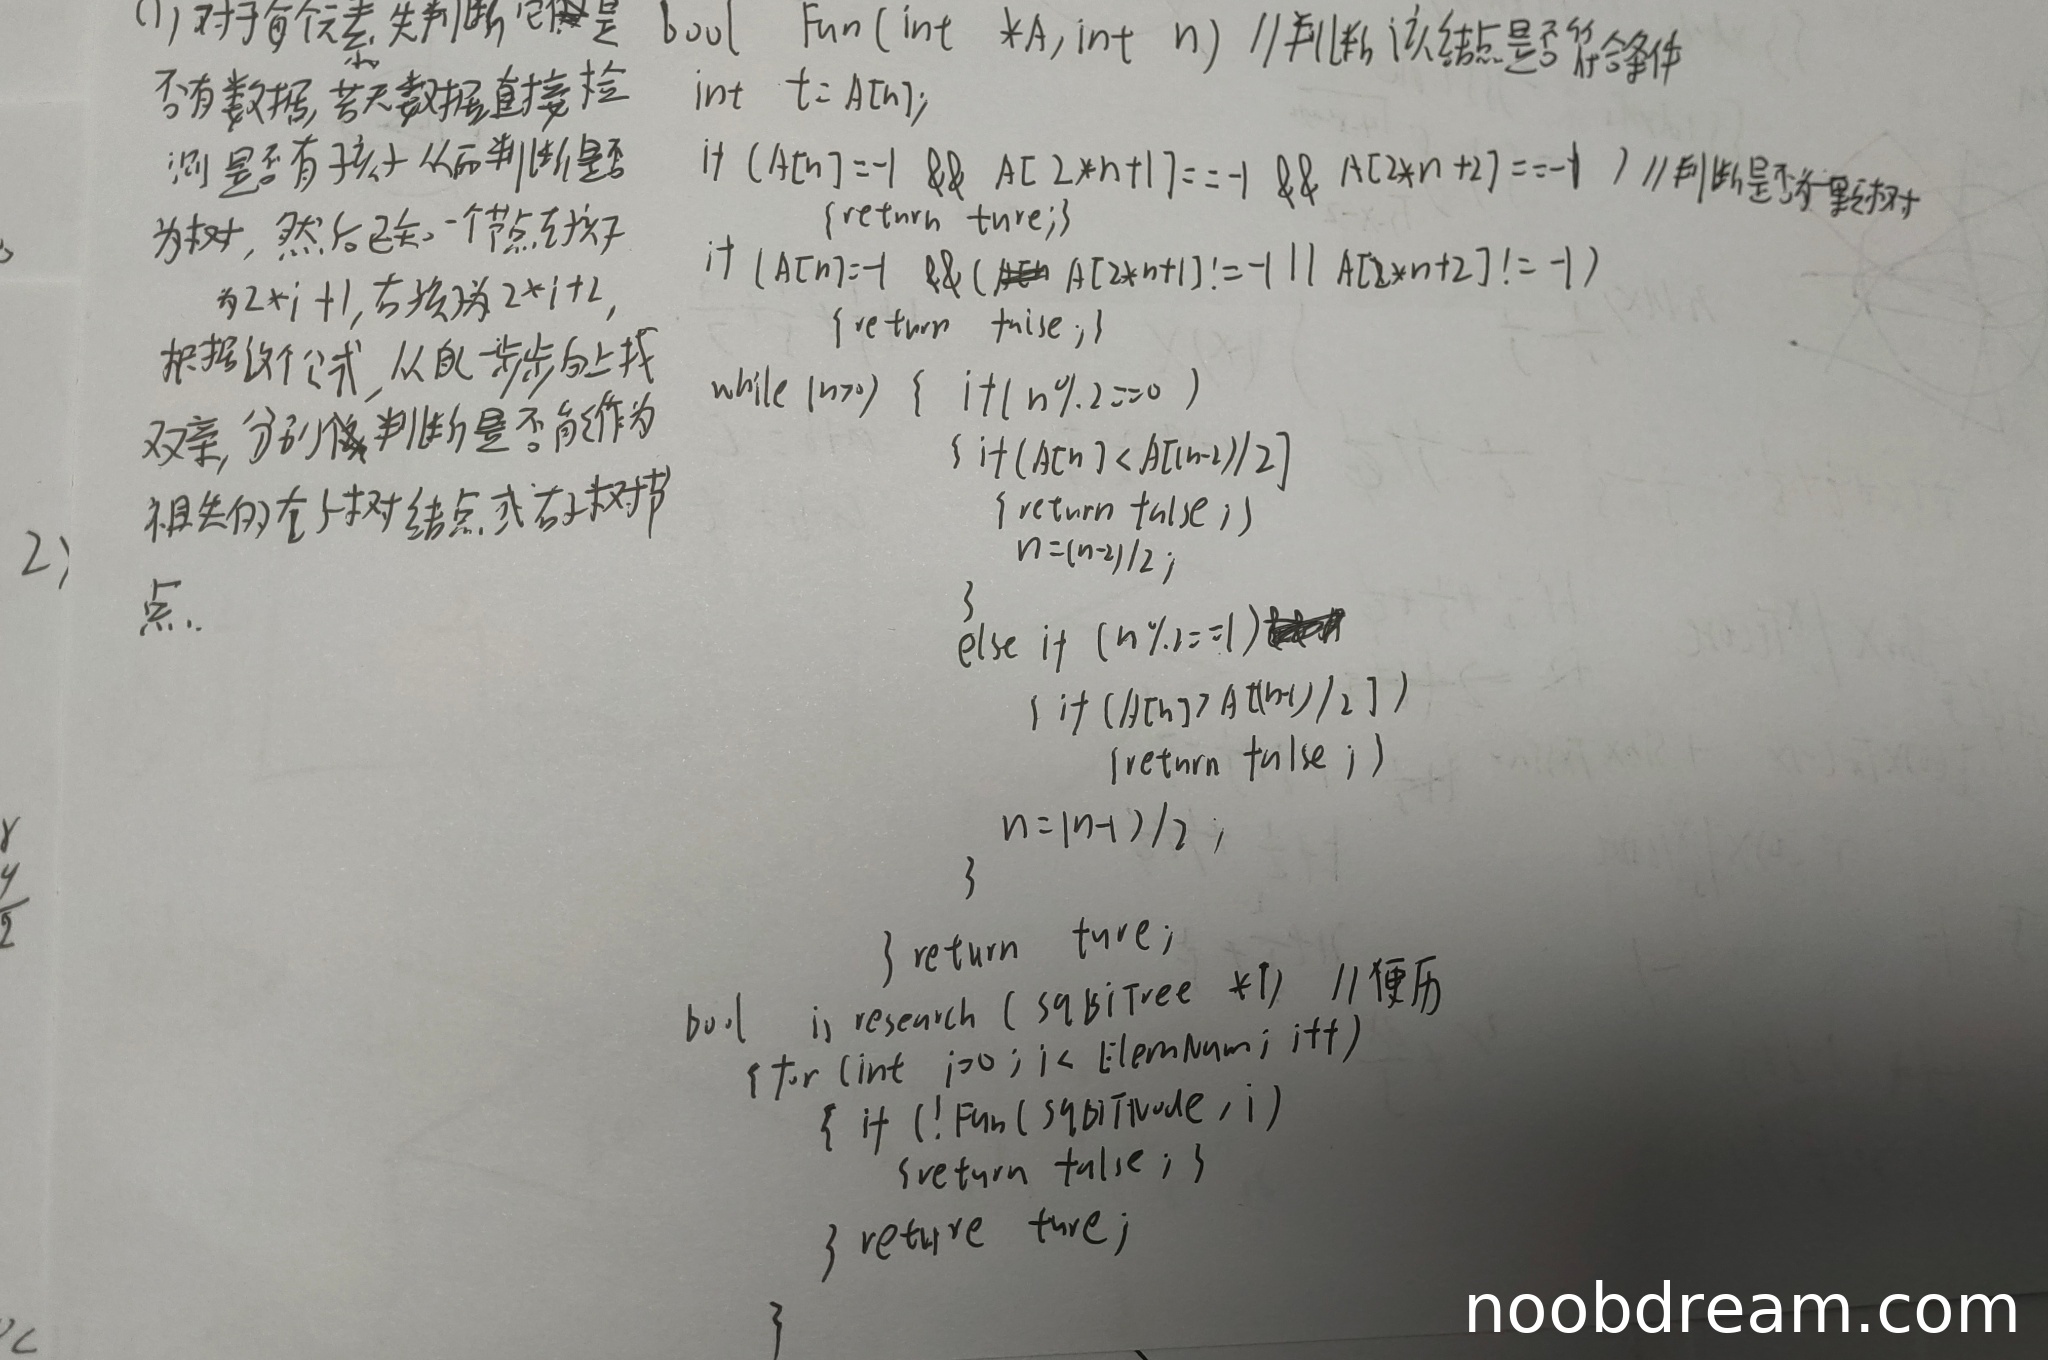 (1) 对于每个元素,先判断它是
否有数据,若无数据直接检
测是否有孩子从而判断是否
为树,然后已知一个节点左孩子
为2*i+1,右孩子为2*i+2,
根据这个公式,从自一步步向上找
双亲,分别判断是否能作为
祖先的左子树结点或右子树节
点..
bool Fun(int *A,int n) //判断该结点是否符合条件
int t=A[n];
if (A[n]=-1 && A[2*n+1]==-1 && A[2*n+2]==-1 ) //判断是否为一颗树
{return ture;}
if (A[n]=-1 &&( A[2*n+1]!=-1 || A[2*n+2]!=-1)
{return false;}
while (n>0) { if(n%2==0 )
{ if(A[n]<A[(n-2)/2]
{return false;}
n=(n-2)/2;
}
else if (n%2==1)
{ if(A[n]>A[(n-1)/2])
{return false;}
n=(n-1)/2;
}
} return ture;
bool is research (SqBiTree *T) //便历
{for(int i=0;i<ElemNum;i++)
{ if (!Fun(SqBiTNode,i)
{return false;}
} reture ture;
}
2)
y
2
noobdream.com